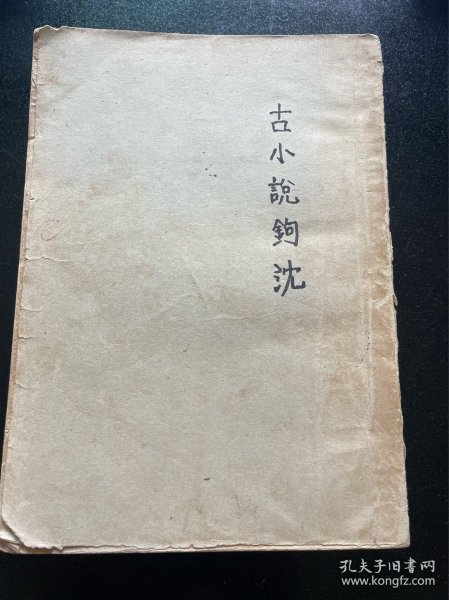 古小說鉤沈
孔夫子旧书网
www.kongfz.com